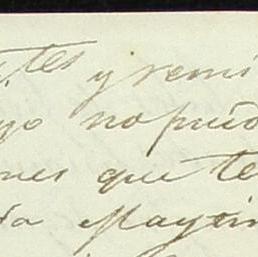 tes y remi
go no pued
nes que te
da Mayor